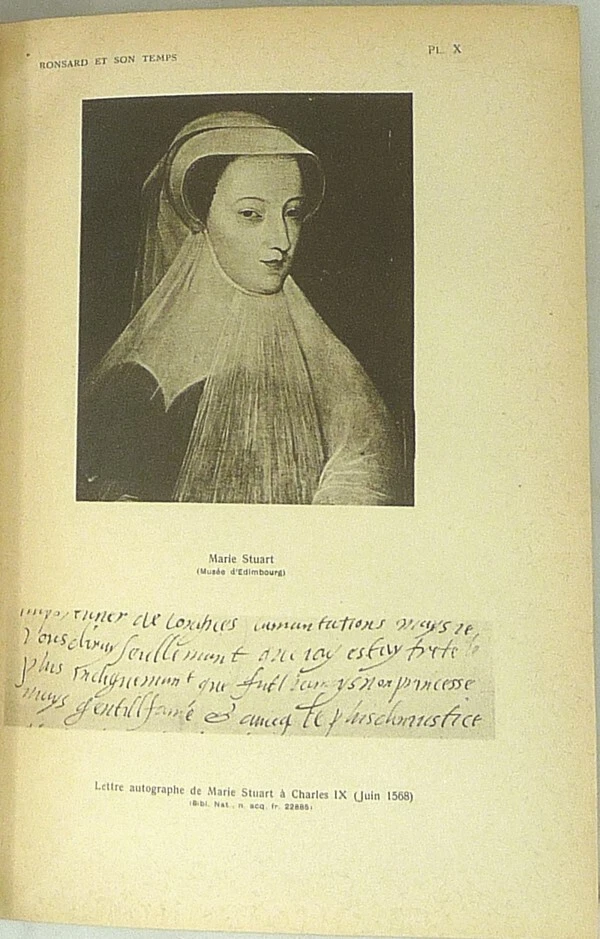 RONSARD ET SON TEMPS
PL. X
Marie Stuart
(Musée d'Edimbourg)
de lamantations mays je
vous diray seullemant que j'ay estay
plus indignemant que fut jamays non princesse
mays gentillfame &
Lettre autographe de Marie Stuart à Charles IX (Juin 1568)
(Bibl. Nat., n. acq. fr. 22885)